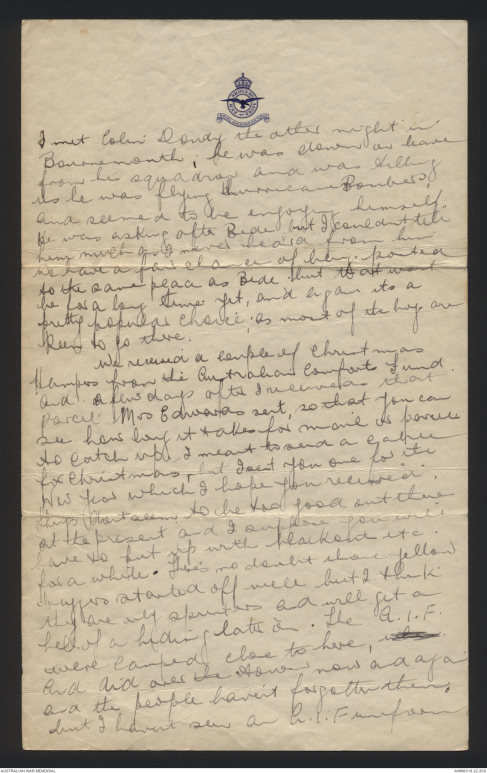 I met Colin Dandy the other night in
Bournemouth, he was down on leave
from his squadron and was telling
us he was flying Hurricane Bombers,
and seemed to be enjoying himself.
He was asking after Bede but I couldn't tell
him much as I never heard from him.
We have a fair chance of being posted
to the same place as Bede but that won't
be for a long time yet, and again its a
pretty popular choice as most of the boys are
keen to go there.
We received a couple of Christmas
Hampers from the Australian Comforts Fund
and a few days after I received that
parcel Mrs Edwards sent, so that you can
see how long it takes for mail or parcels
to catch up. I meant to send a cable
for Christmas, but I sent you one for the
New Year which I hope you received.
Things don't seem to be too good out there
at the present and I suppose you will
have to put up with blackouts etc.
for a while. There's no doubt those yellow
started off well but I think
they are only sprinters and will get a
hell of a hiding later on. The A.I.F.
were camped close to here,
and did over the town now and again
and the people haven't forgotten them,
but I haven't seen an A.I.F uniform
AUSTRALIAN WAR MEMORIAL